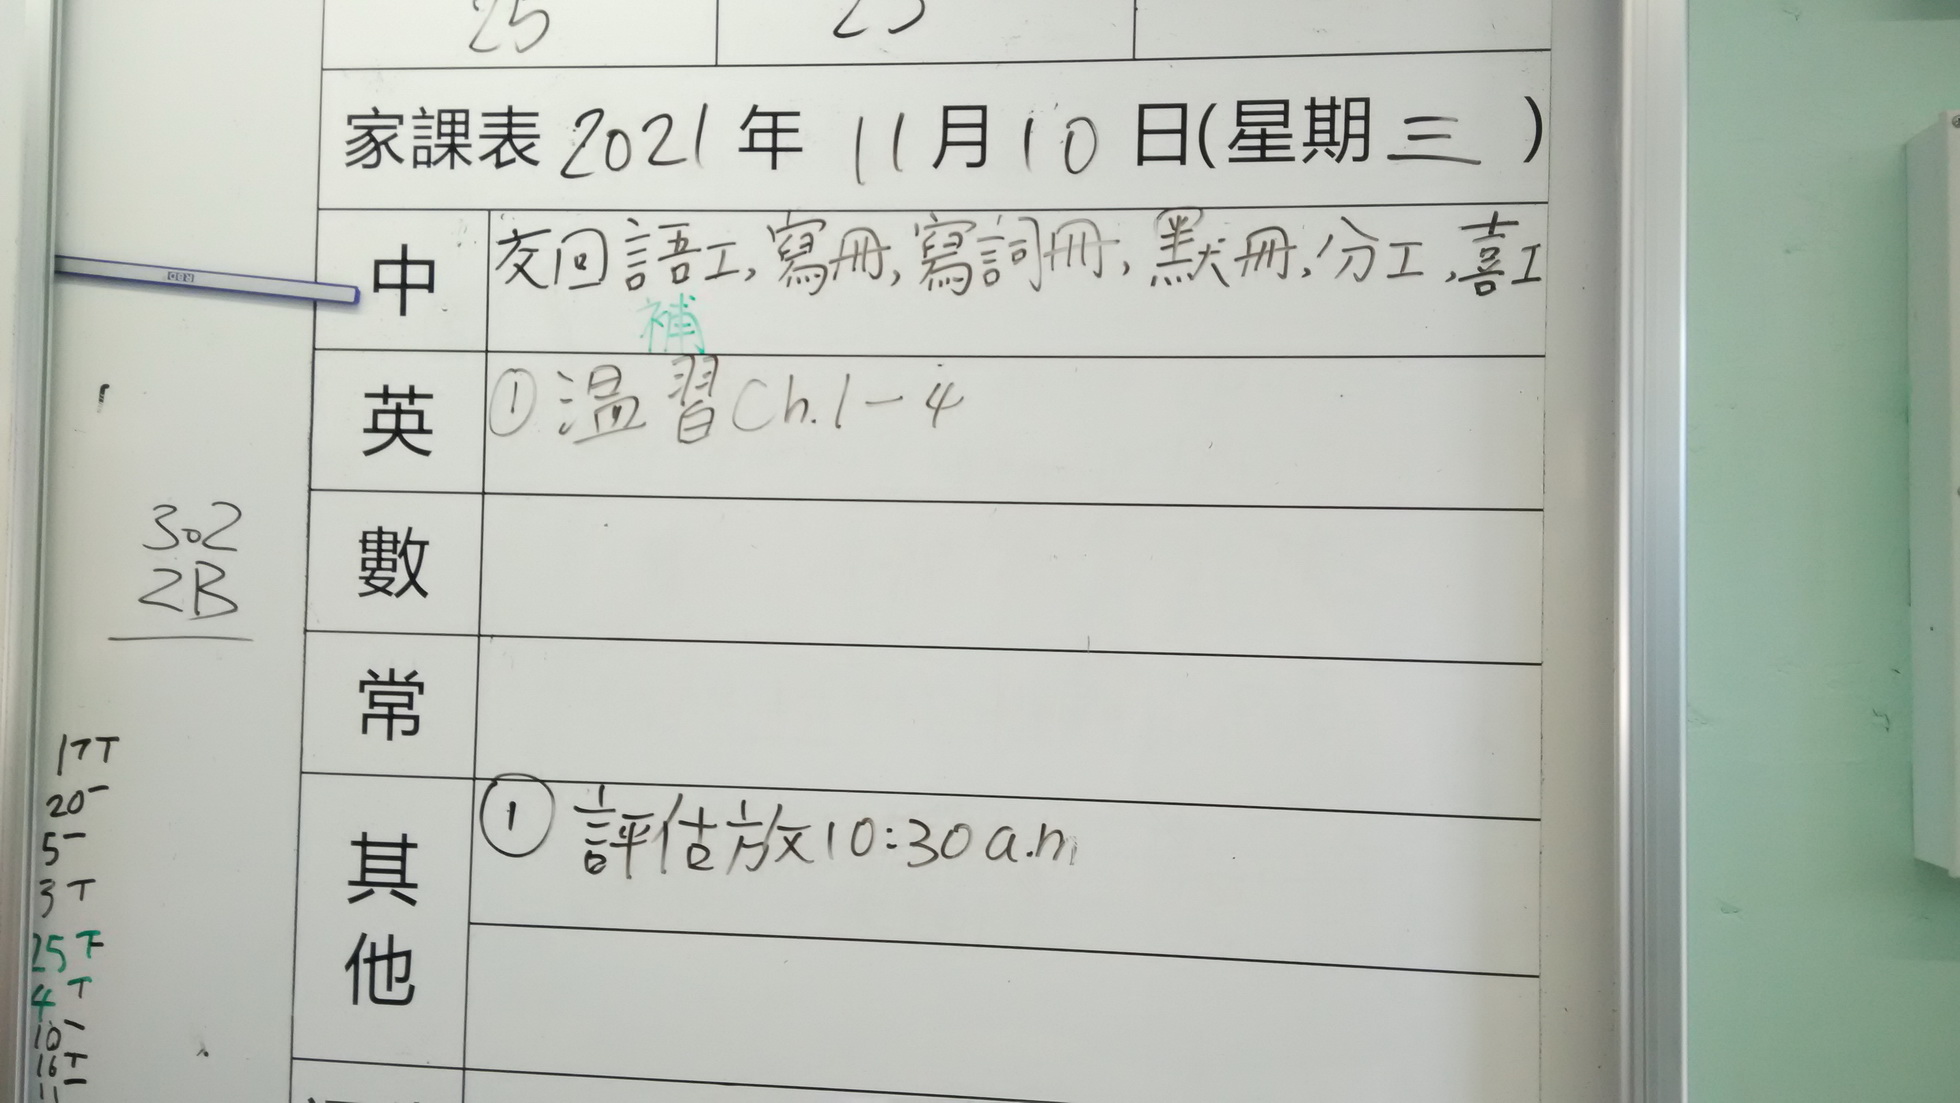 25 25
家課表 2021 年 11 月 10 日(星期 三 )
中 交回語工, 寫冊, 寫詞冊, 默冊, 分工, 喜工
補
英 ① 溫習 Ch.1-4
數
常
其他 ① 評估放 10:30 a.m
302
2B
17 T
20 一
5 一
3 T
25 下
4 T
10 一
16 T
11 一